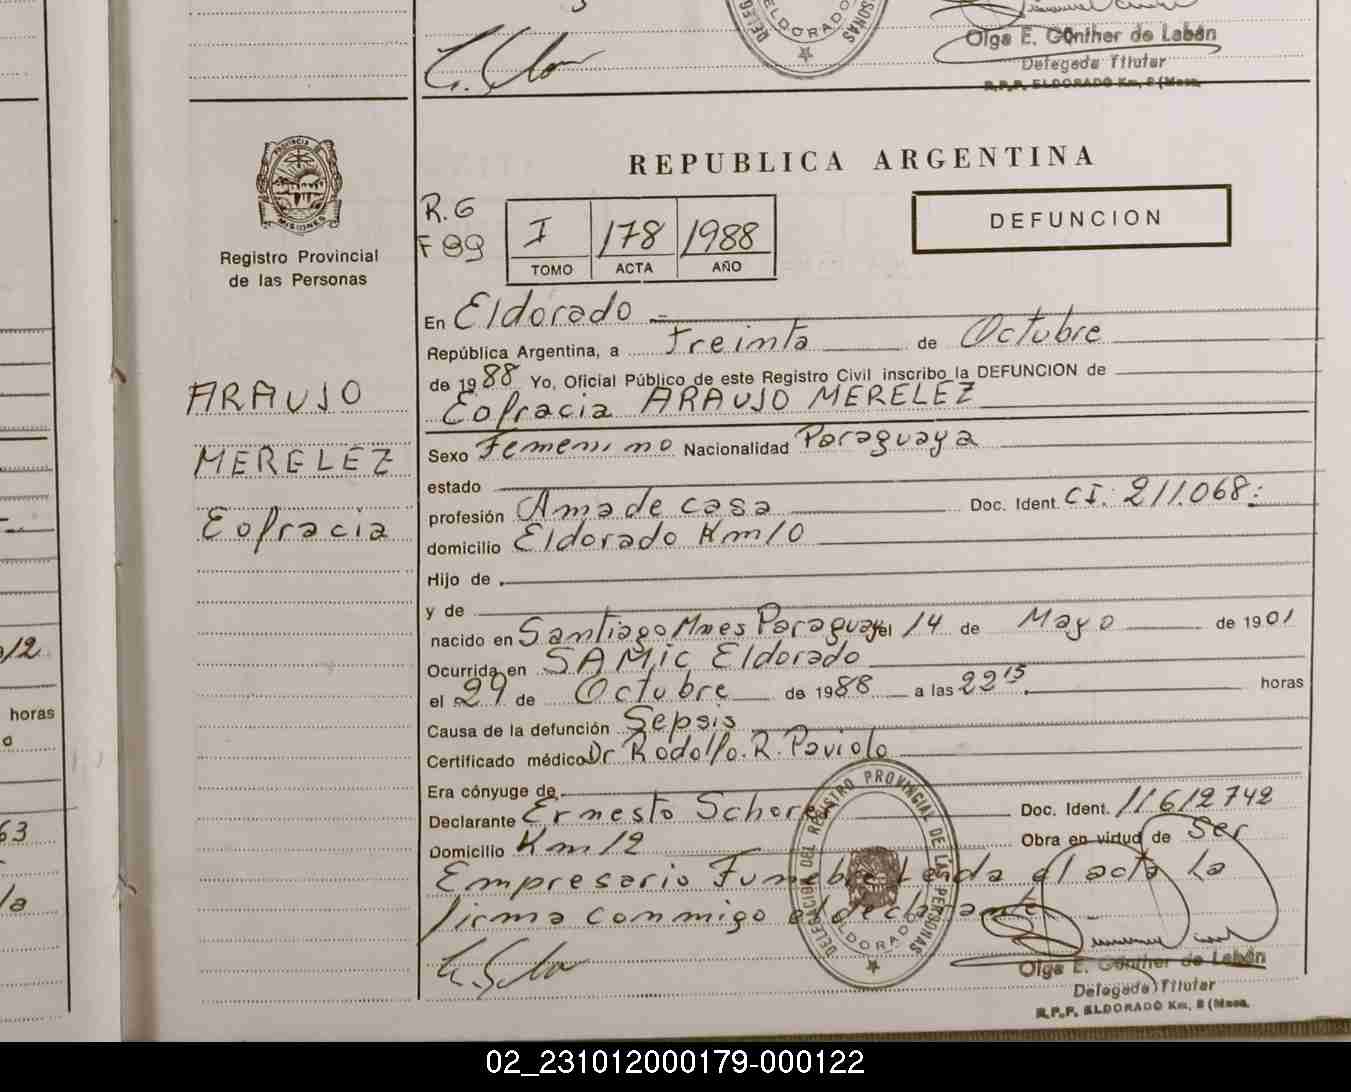 ELDORADO
Olga E. Günther de Labán
Delegada Titular
R.P.P. ELDORADO Km. 8 (Mnes.
PROVINCIA D
MISIONES
Registro Provincial
de las Personas
ARAUJO
MERELEZ
Eofracia
REPUBLICA ARGENTINA
R.G
F 99
I 178 1988
TOMO ACTA AÑO
DEFUNCION
En Eldorado
República Argentina, a Treinta de Octubre
de 1988 Yo, Oficial Público de este Registro Civil inscribo la DEFUNCION de
Eofracia ARAUJO MERELEZ
Sexo Femenino Nacionalidad Paraguaya
estado
profesión Ama de casa Doc. Ident. CI: 211.068:
domicilio Eldorado Km10
Hijo de
y de
nacido en Santiago Mnes Paraguay el 14 de Mayo de 1901
Ocurrida en SAMIC Eldorado
el 29 de Octubre de 1988 a las 22 15 horas
Causa de la defunción Sepsis
Certificado médico Dr Rodolfo. R. Paviolo
Era cónyuge de
Declarante Ernesto Schore Doc. Ident. 11612742
Domicilio Km12 Obra en virtud de Ser
Empresario Funebre Leida el acta La
firma conmigo el declarante
DELEGACION DEL REGISTRO PROVINCIAL DE LAS PERSONAS
ELDORADO
Olga E. Günther de Labán
Delegada Titular
R.P.P. ELDORADO Km. 8 (Mnes.
horas
02_231012000179-000122